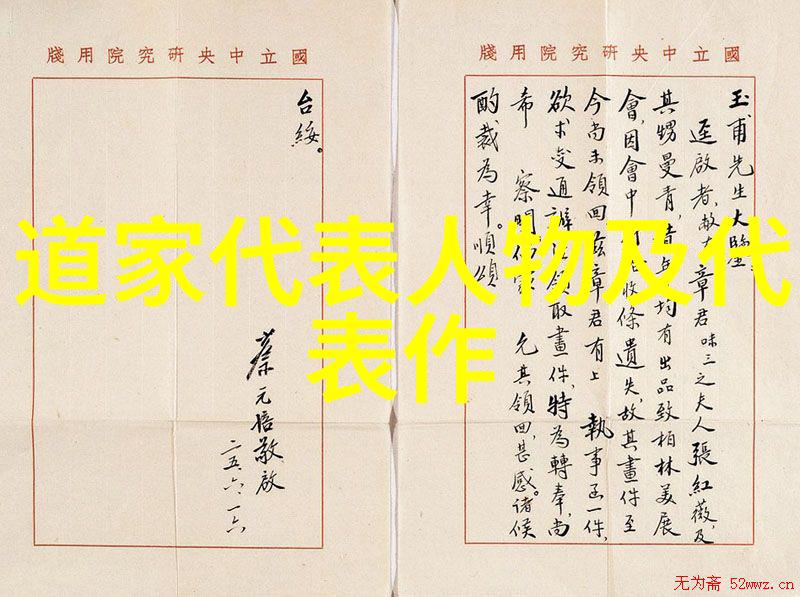 國立中央研究院用牋
玉甫先生大鑒
逕啟者,敝友章君味三之夫人張紅薇,及
其甥曼青,年均有出品致柏林美展
會,因會中收條遺失,故其畫件至
今尚未領回茲章君有上 執事函一件,
欲求交通領取畫件,特為轉奉,尚
希 察閱 允其領回,甚感。諸候
酌裁為幸。順頌
國立中央研究院用牋
台綏。
蔡元培敬啟
二五、六、一六
道家代表人物及代
表作
无为斋 52wwz.cn